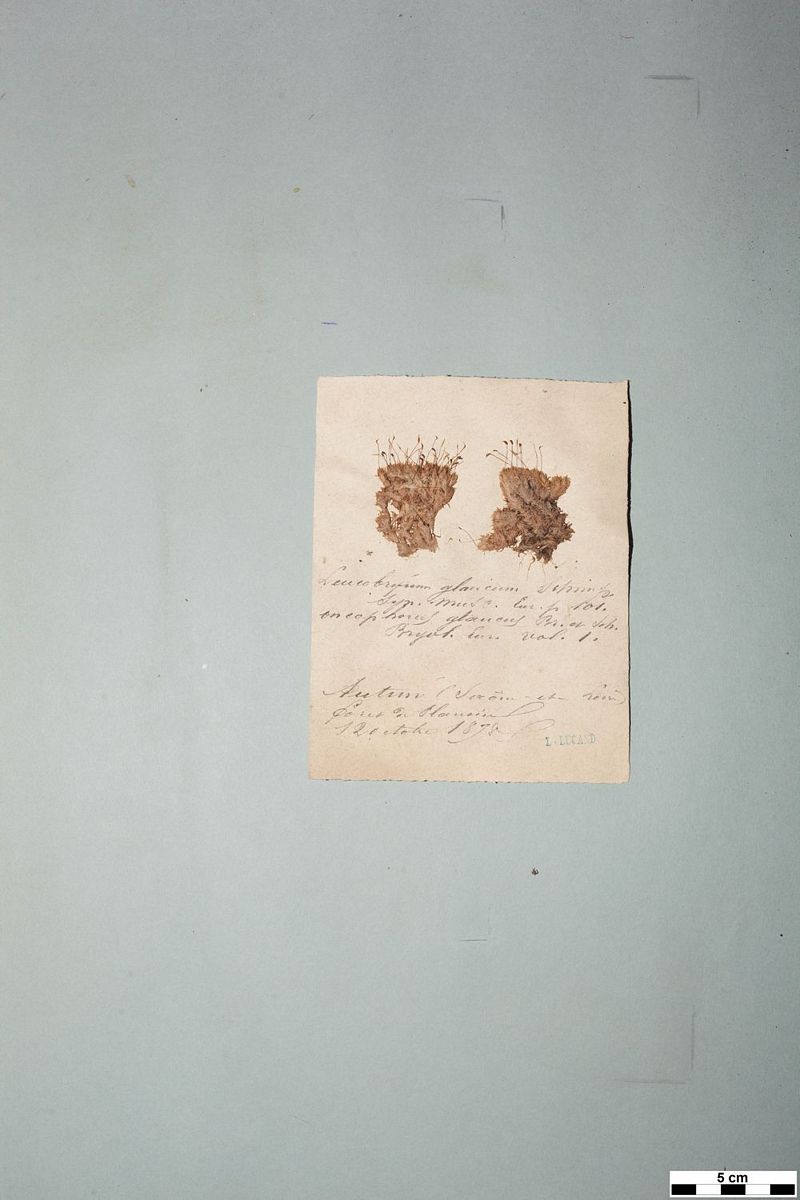 Leucobryum glaucum Schimp.
Syn. musc. Eur. p 101.
oncophorus glaucus Br. et Sch.
Bryol. Eur. vol. 1.
Autun (Saône-et-Loire)
forêt de Planoise
12 octobre 1878
L. LUCAND
5 cm